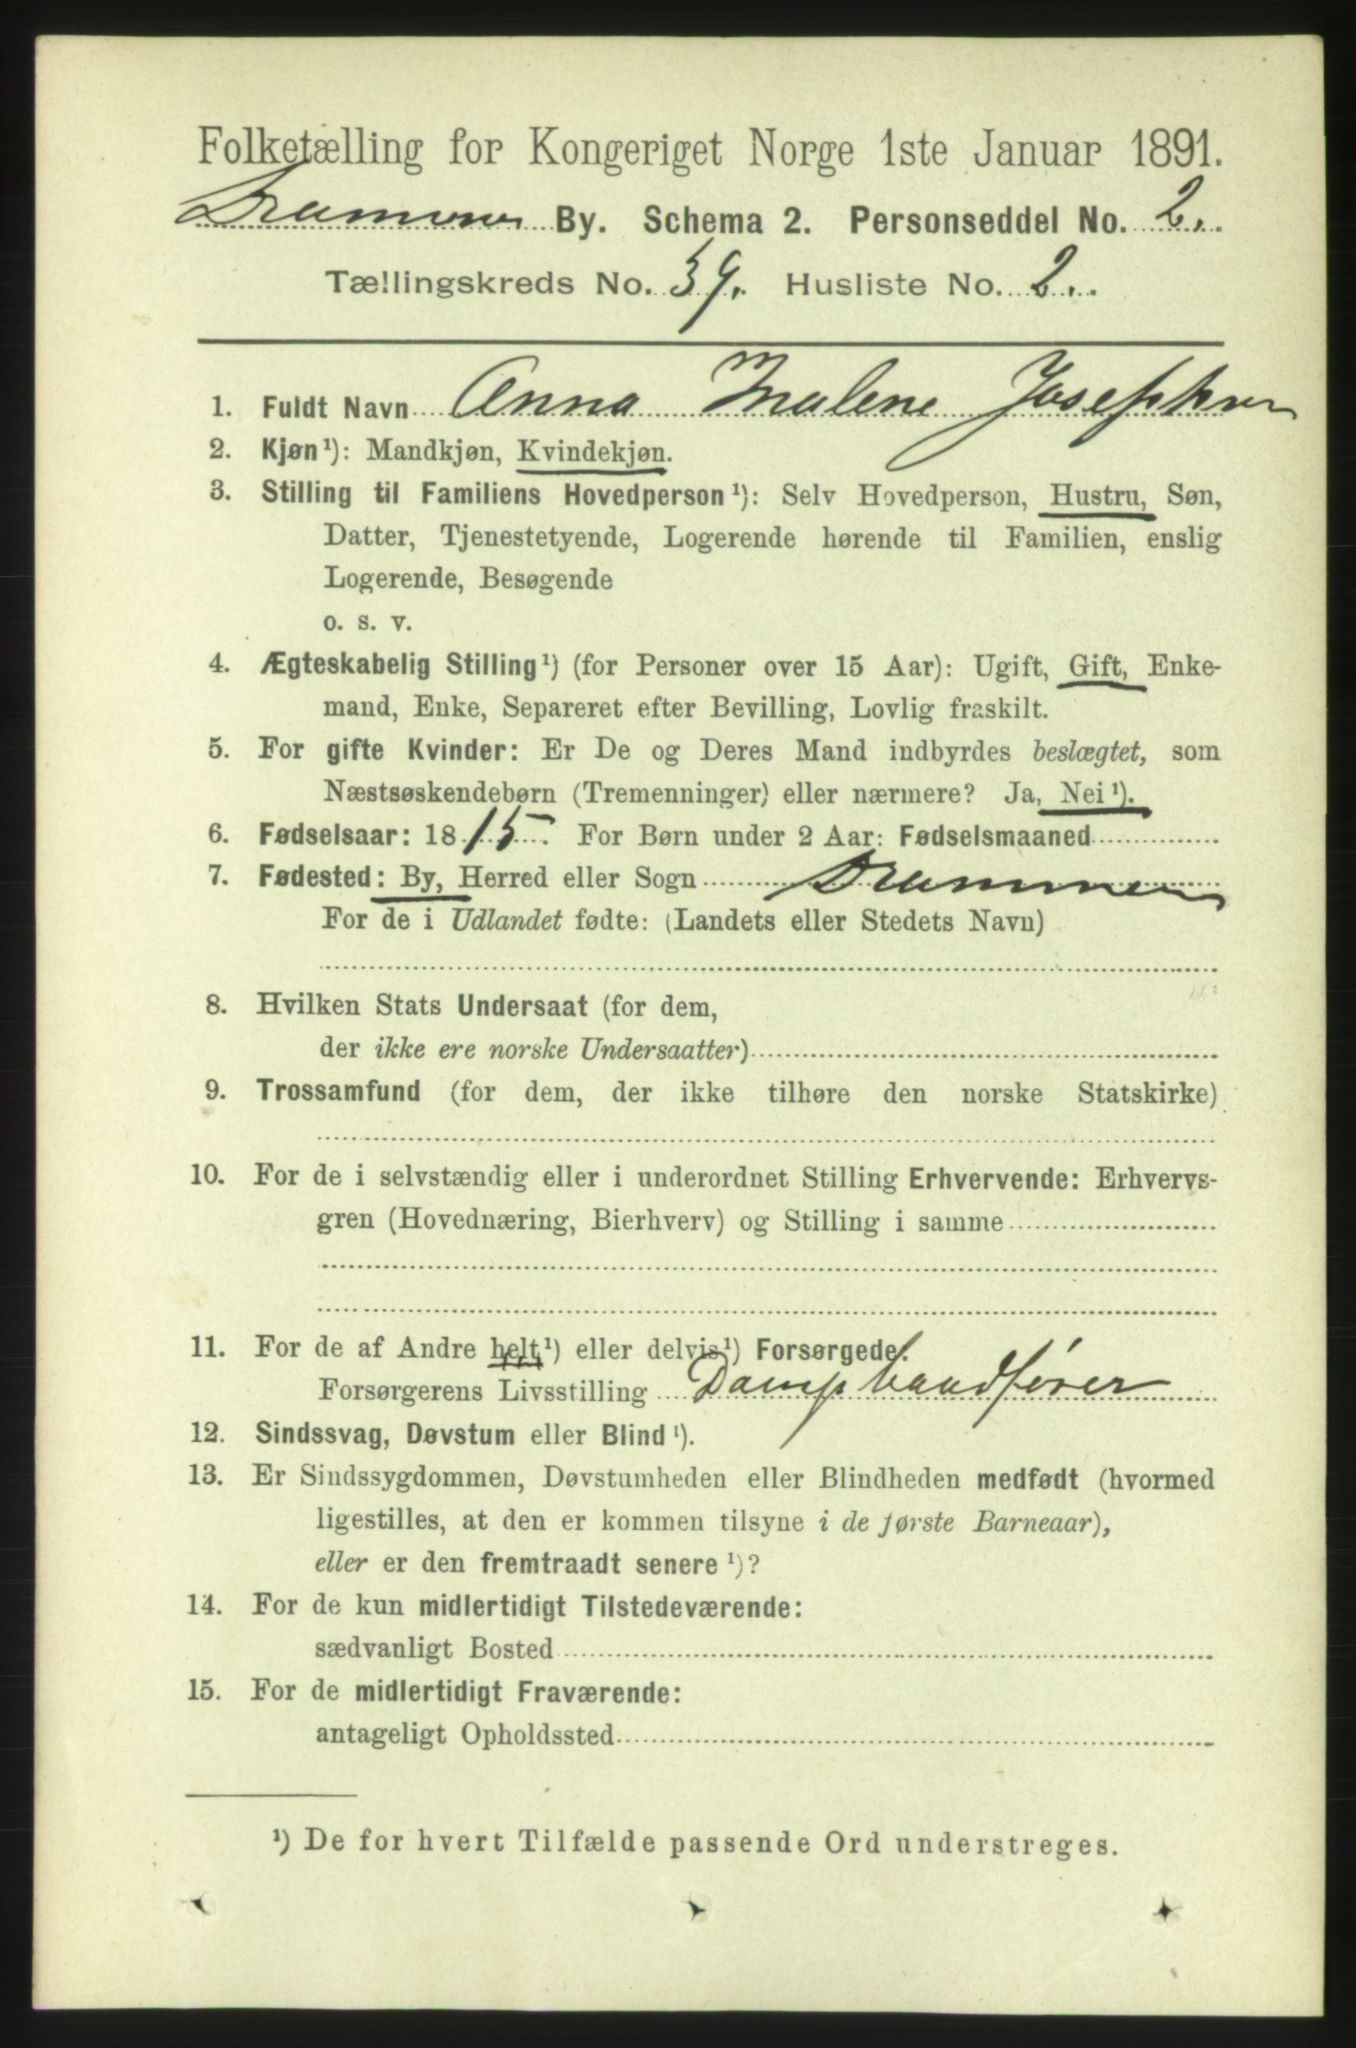 Folketælling for Kongeriget Norge 1ste Januar 1891.
Drammens By. Schema 2. Personseddel No. 2.
Tællingskreds No. 59. Husliste No. 2.
1. Fuldt Navn Anna Malene Josephsen
2. Kjøn ¹): Mandkjøn, Kvindekjøn.
3. Stilling til Familiens Hovedperson ¹): Selv Hovedperson, Hustru, Søn,
Datter, Tjenestetyende, Logerende hørende til Familien, enslig
Logerende, Besøgende
o. s. v.
4. Ægteskabelig Stilling ¹) (for Personer over 15 Aar): Ugift, Gift, Enke-
mand, Enke, Separeret efter Bevilling, Lovlig fraskilt.
5. For gifte Kvinder: Er De og Deres Mand indbyrdes beslægtet, som
Næstsøskendebørn (Tremenninger) eller nærmere? Ja, Nei ¹).
6. Fødselsaar: 1815. For Børn under 2 Aar: Fødselsmaaned
7. Fødested: By, Herred eller Sogn Drammen
For de i Udlandet fødte: (Landets eller Stedets Navn)
8. Hvilken Stats Undersaat (for dem,
der ikke ere norske Undersaatter)
9. Trossamfund (for dem, der ikke tilhøre den norske Statskirke)
10. For de i selvstændig eller i underordnet Stilling Erhvervende: Erhvervs-
gren (Hovednæring, Bierhverv) og Stilling i samme
11. For de af Andre helt ¹) eller delvis ¹) Forsørgede.
Forsørgerens Livsstilling Dampbaadfører
12. Sindssvag, Døvstum eller Blind ¹).
13. Er Sindssygdommen, Døvstumheden eller Blindheden medfødt (hvormed
ligestilles, at den er kommen tilsyne i de første Barneaar),
eller er den fremtraadt senere ¹)?
14. For de kun midlertidigt Tilstedeværende:
sædvanligt Bosted
15. For de midlertidigt Fraværende:
antageligt Opholdssted
¹) De for hvert Tilfælde passende Ord understreges.